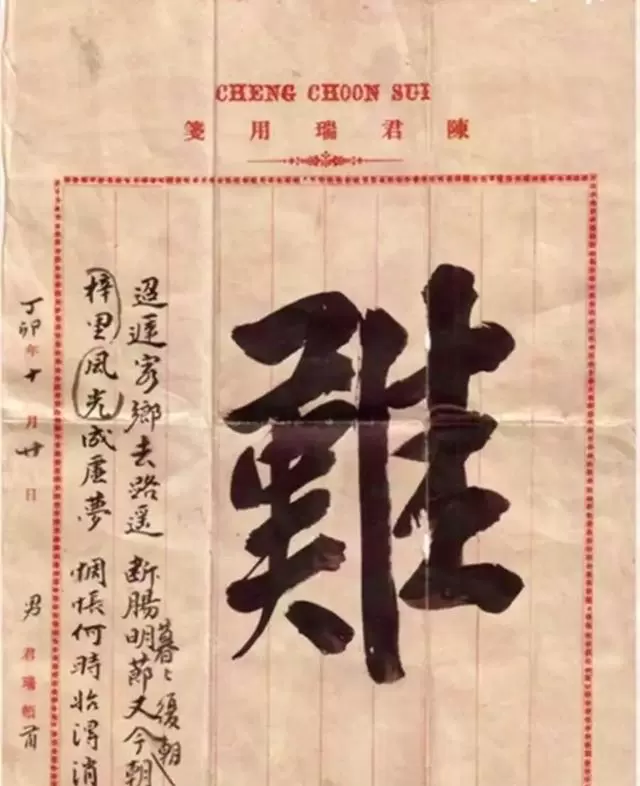 CHENG CHOON SUI
陳君瑞用箋
難
迢遞家鄉去路遥 断腸明節又今朝
暮々復朝
梓里風光成虛夢 惆悵何時始得消
丁卯年十月廿日 男 君瑞